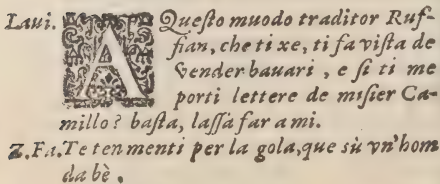 Laui. A Queſto muodo traditor Ruf-
fian, che ti xe, ti fa viſta de
vender bauari, e ſi ti me
porti lettere de miſier Ca-
millo? baſta, laſſa far a mi.
Z.Fa. Te ten menti per la gola, que sù vn'hom
da bè.